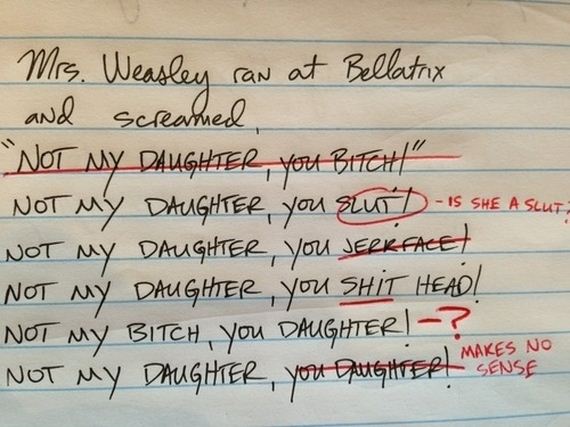 Mrs. Weasley ran at Bellatrix
and screamed,
"NOT MY DAUGHTER, YOU BITCH!"
NOT MY DAUGHTER, YOU SLUT! - IS SHE A SLUT?
NOT MY DAUGHTER, YOU JERKFACE!
NOT MY DAUGHTER, YOU SHIT HEAD!
NOT MY BITCH, YOU DAUGHTER! - ?
NOT MY DAUGHTER, YOU DAUGHTER! MAKES NO
SENSE